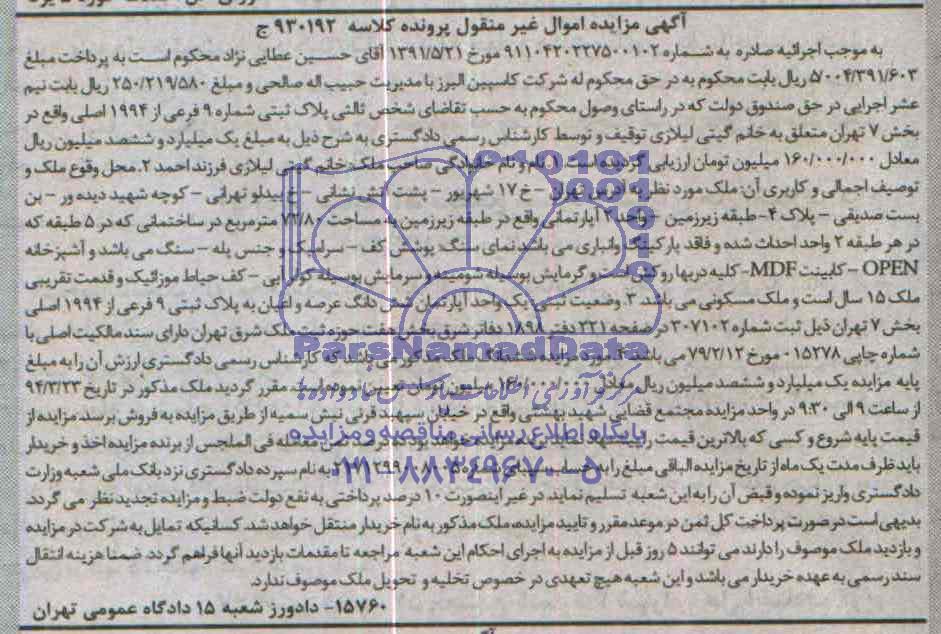 آگهی مزایده اموال غیر منقول پرونده کلاسه ۹۳۰۱۹۲ ج
به موجب اجرائیه صادره به شماره ۹۱۱۰۴۲۰۲۲۷۵۰۰۱۰۲ مورخ ۱۳۹۱/۵/۲۱ آقای حسین عطایی نژاد محکوم است به پرداخت مبلغ
۵/۰۰۴/۳۹۱/۶۰۳ ریال بابت محکوم به در حق محکوم له شرکت کاسپین البرز با مدیریت حبیب اله صالحی و مبلغ ۲۵۰/۲۱۹/۵۸۰ ریال بابت نیم
عشر اجرایی در حق صندوق دولت که در راستای وصول محکوم به حسب تقاضای شخص ثالثی پلاک ثبتی شماره ۹ فرعی از ۱۹۹۴ اصلی واقع در
بخش ۷ تهران متعلق به خانم گیتی لیلازی توقیف و توسط کارشناس رسمی دادگستری به شرح ذیل به مبلغ یک میلیارد و ششصد میلیون ریال
معادل ۱۶۰/۰۰۰/۰۰۰ میلیون تومان ارزیابی گردیده است. ۱. نام و نام خانوادگی صاحب ملک: خانم گیتی لیلازی فرزند احمد ۲. محل وقوع ملک و
توصیف اجمالی و کاربری آن: ملک مورد نظر به آدرس تهران – خ ۱۷ شهریور – پشت آتش نشانی – خ بیدلو تهرانی – کوچه شهید دیده ور – بن
بست صدیقی – پلاک ۴- طبقه زیرزمین – واحد ۲ آپارتمانی واقع در طبقه زیرزمین به مساحت ۷۲/۸۰ مترمربع در ساختمانی که در ۵ طبقه که
در هر طبقه ۲ واحد احداث شده و فاقد پارکینگ و انباری می باشد نمای سنگ: پوشش کف – سرامیک و جنس پله – سنگ می باشد و آشپزخانه
OPEN – کابینت MDF- کلیه دربها روکش است و گرمایش بوسیله شومینه و سرمایش بوسیله کولر آبی – کف حیاط موزائیک و قدمت تقریبی
ملک ۱۵ سال است و ملک مسکونی می باشد. ۳. وضعیت ثبتی: یک واحد آپارتمان شش دانگ عرصه و اعیان به پلاک ثبتی ۹ فرعی از ۱۹۹۴ اصلی
بخش ۷ تهران ذیل ثبت شماره ۳۰۷۱۰۲ در صفحه ۲۲۱ دفتر ۱۸۹۸ دفاتر شرق بخش هفت حوزه ثبت ملک شرق تهران دارای سند مالکیت اصلی با
شماره چاپی ۰۱۵۲۷۸ مورخ ۷۹/۲/۱۲ می باشد ۴. مورد مزایده ششدانگ ملک مذکور می باشد که کارشناس رسمی دادگستری ارزش آن را به مبلغ
پایه مزایده یک میلیارد و ششصد میلیون ریال معادل ۱۶۰/۰۰۰/۰۰۰ میلیون تومان تعیین نموده است. مقرر گردید ملک مذکور در تاریخ ۹۴/۳/۲۳
از ساعت ۹ الی ۹:۳۰ در واحد مزایده مجتمع قضایی شهید بهشتی واقع در خیابان سپهبد قرنی نبش سمیه از طریق مزایده به فروش برسد. مزایده از
قیمت پایه شروع و کسی که بالاترین قیمت را فی المجلس از برنده مزایده اخذ و خریدار
باید ظرف مدت یک ماه از تاریخ مزایده الباقی مبلغ را به حساب سیبای شماره به نام سپرده دادگستری نزد بانک ملی شعبه وزارت
دادگستری واریز نموده و قبض آن را به این شعبه تسلیم نماید. در غیر اینصورت ۱۰ درصد پرداختی به نفع دولت ضبط و مزایده تجدید نظر می گردد.
بدیهی است در صورت پرداخت کل ثمن در موعد مقرر و تایید مزایده، ملک مذکور به نام خریدار منتقل خواهد شد. کسانیکه تمایل به شرکت در مزایده
و بازدید ملک موصوف را دارند می توانند ۵ روز قبل از مزایده به اجرای احکام این شعبه مراجعه تا مقدمات بازدید آنها فراهم گردد. ضمنا هزینه انتقال
سند رسمی به عهده خریدار می باشد و این شعبه هیچ تعهدی در خصوص تخلیه و تحویل ملک موصوف ندارد.
۱۵۷۶۰- دادورز شعبه ۱۵ دادگاه عمومی تهران
ParsNamadData
پایگاه اطلاع رسانی مناقصه و مزایده
۰۲۱-۸۸۳۴۹۶۷۰-۵